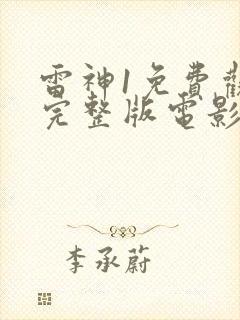 雷神1免費觀
完整版電影
李承蔚